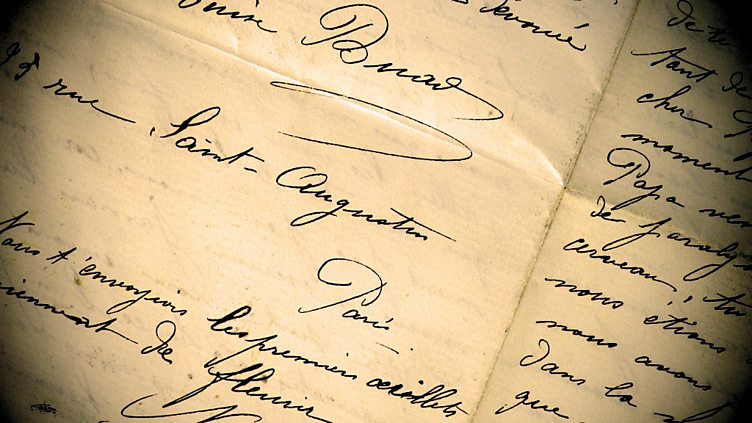 dévoué
Bruad
rue Saint-Augustin
Paris
Nous t'envoyons les premiers œillets
viennent de fleurir
de
tant de
cher
moment
Papa
de paraly
cerveau, tu
nous étions
nous avons
dans la
que